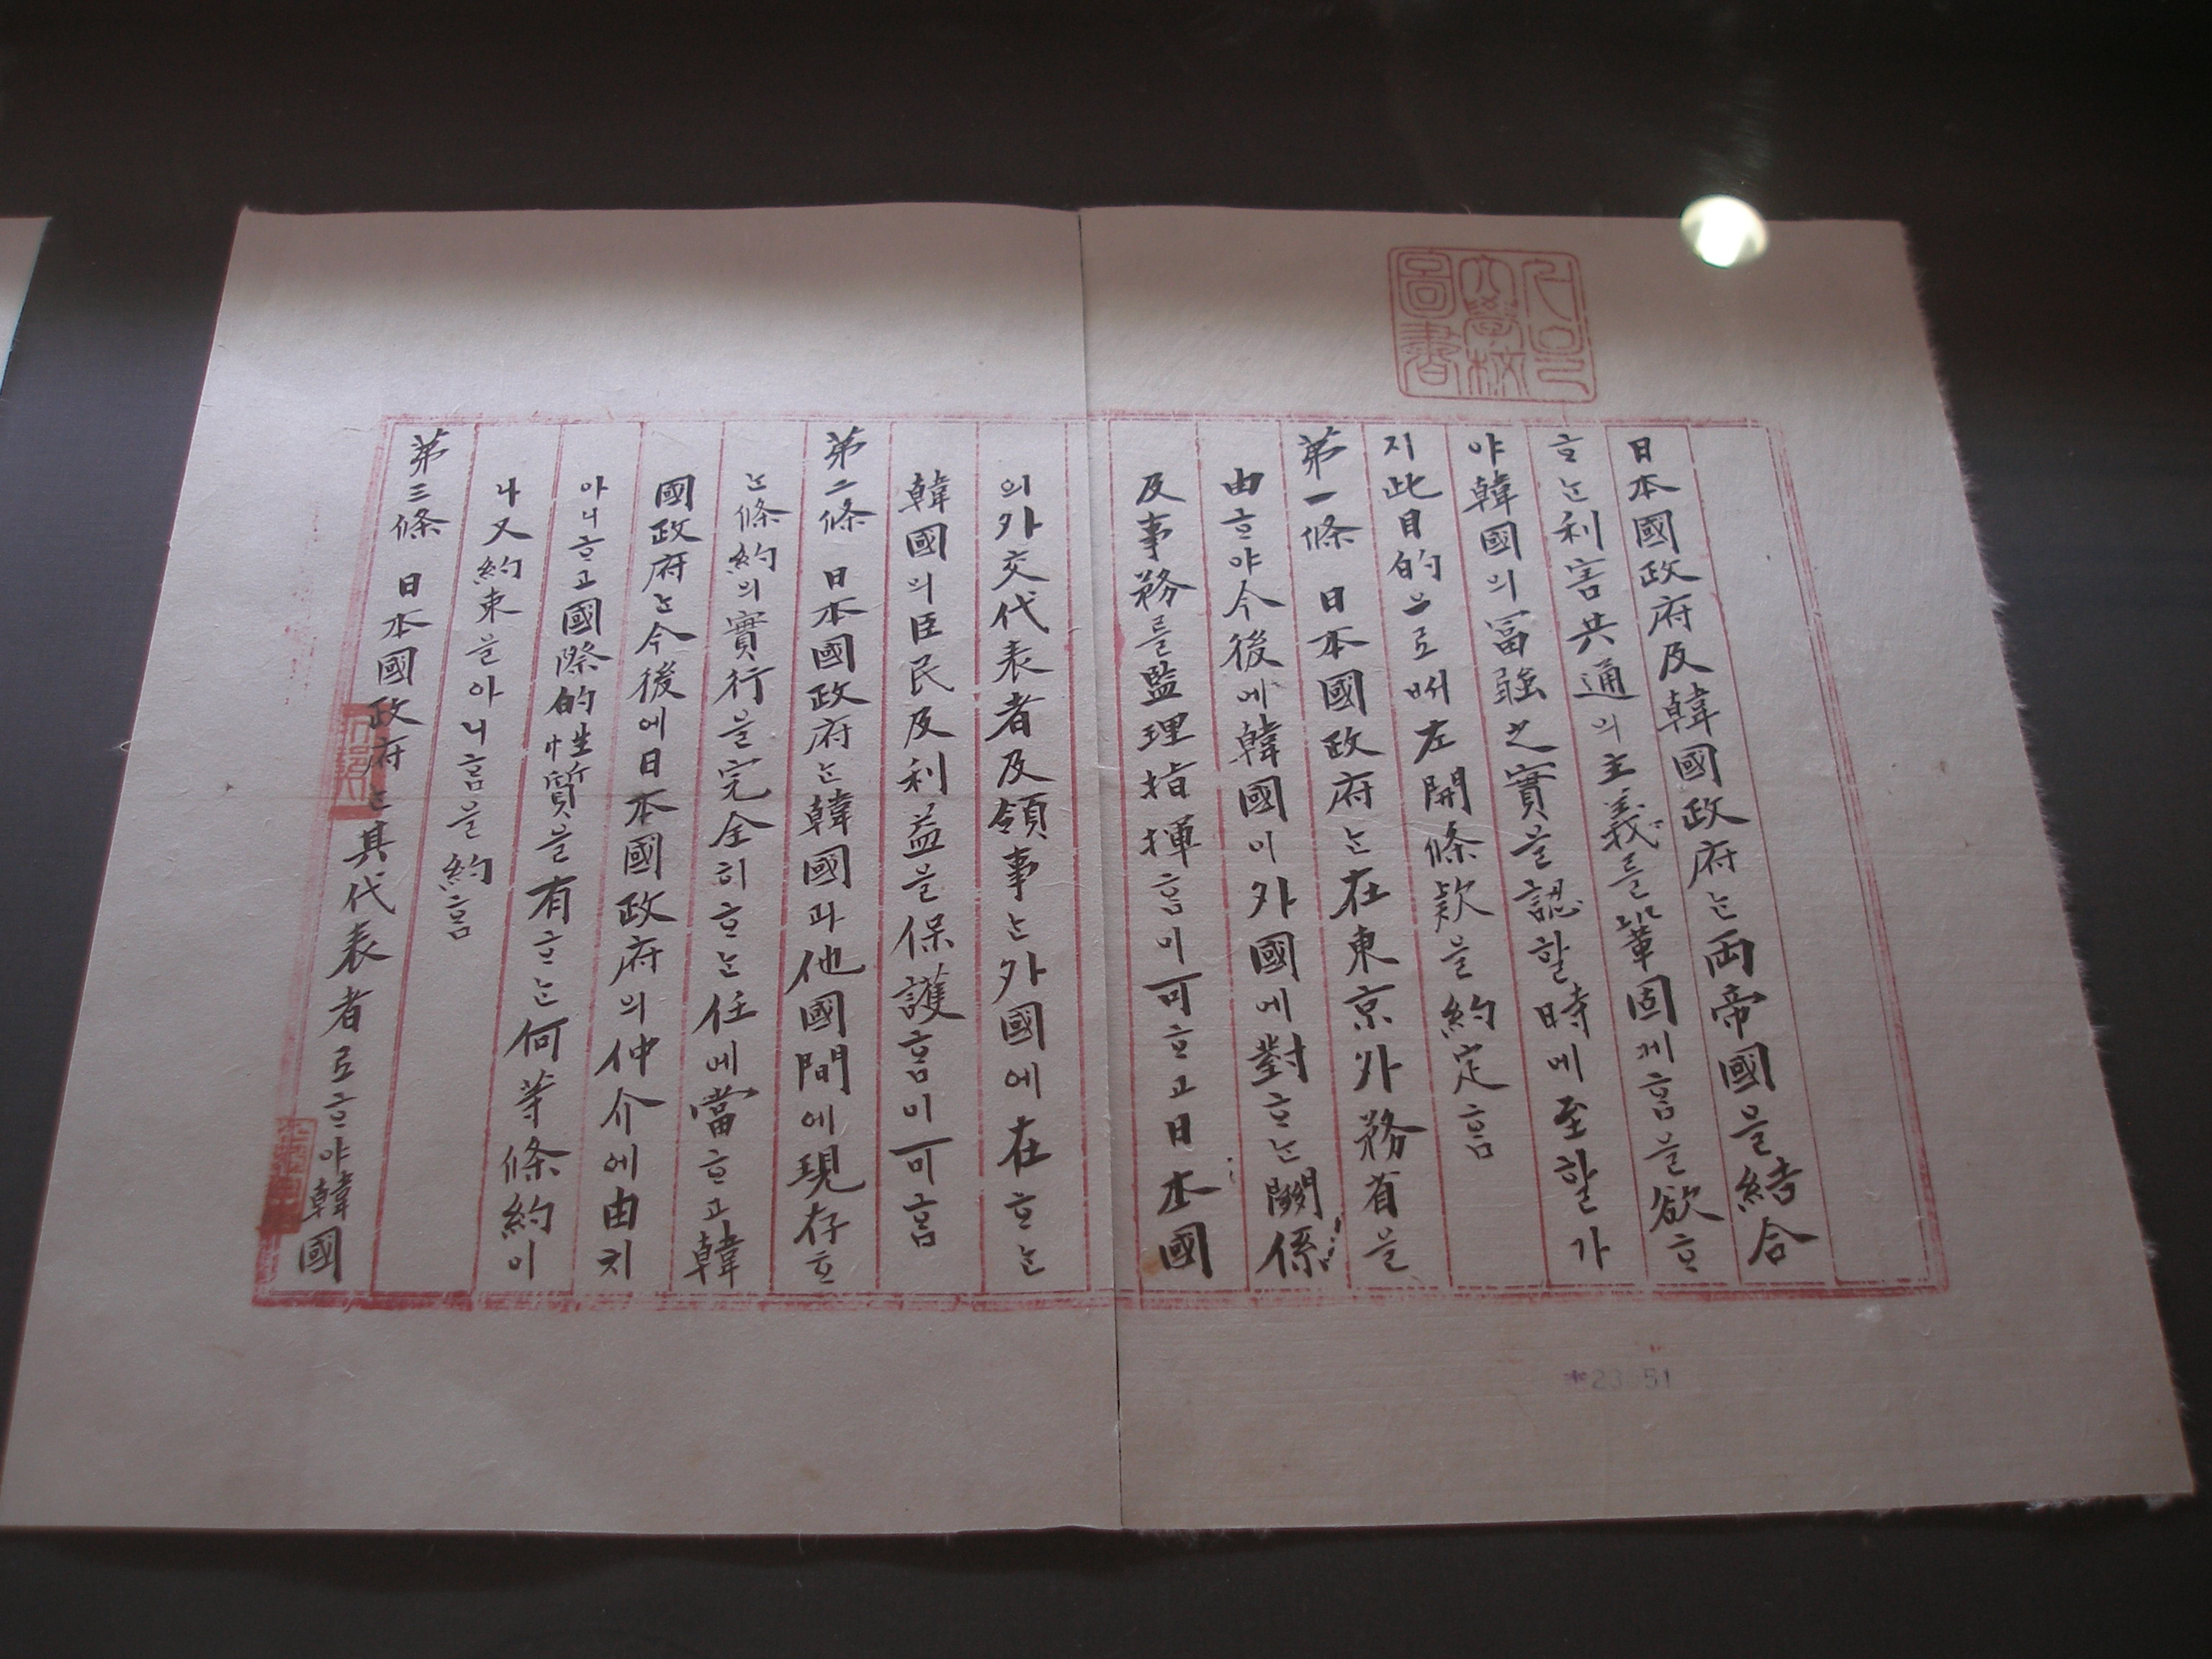 서울
大學校
圖書
日本國政府及韓國政府는両帝國을結合
ᄒᆞ는利害共通의主義를鞏固케ᄒᆞᆷ을欲ᄒᆞ
야韓國의冨强之實을認할時에至할가
지此目的으로ᄡᅥ左開條款을約定ᄒᆞᆷ
第一條 日本國政府는在東京外務省을
由ᄒᆞ야今後에韓國이外國에對ᄒᆞ는關係
及事務를監理指揮ᄒᆞᆷ이可ᄒᆞ고日本國
의外交代表者及領事는外國에在ᄒᆞ는
韓國의臣民及利益을保護ᄒᆞᆷ이可ᄒᆞᆷ
第二條 日本國政府는韓國과他國間에現存ᄒᆞ
는條約의實行을完全히ᄒᆞ는任에當ᄒᆞ고韓
國政府는今後에日本國政府의仲介에由치
아니ᄒᆞ고國際的性質을有ᄒᆞ는何等條約이
나又約束을아니ᄒᆞᆷ을約ᄒᆞᆷ
第三條 日本國政府는其代表者로ᄒᆞ야韓國